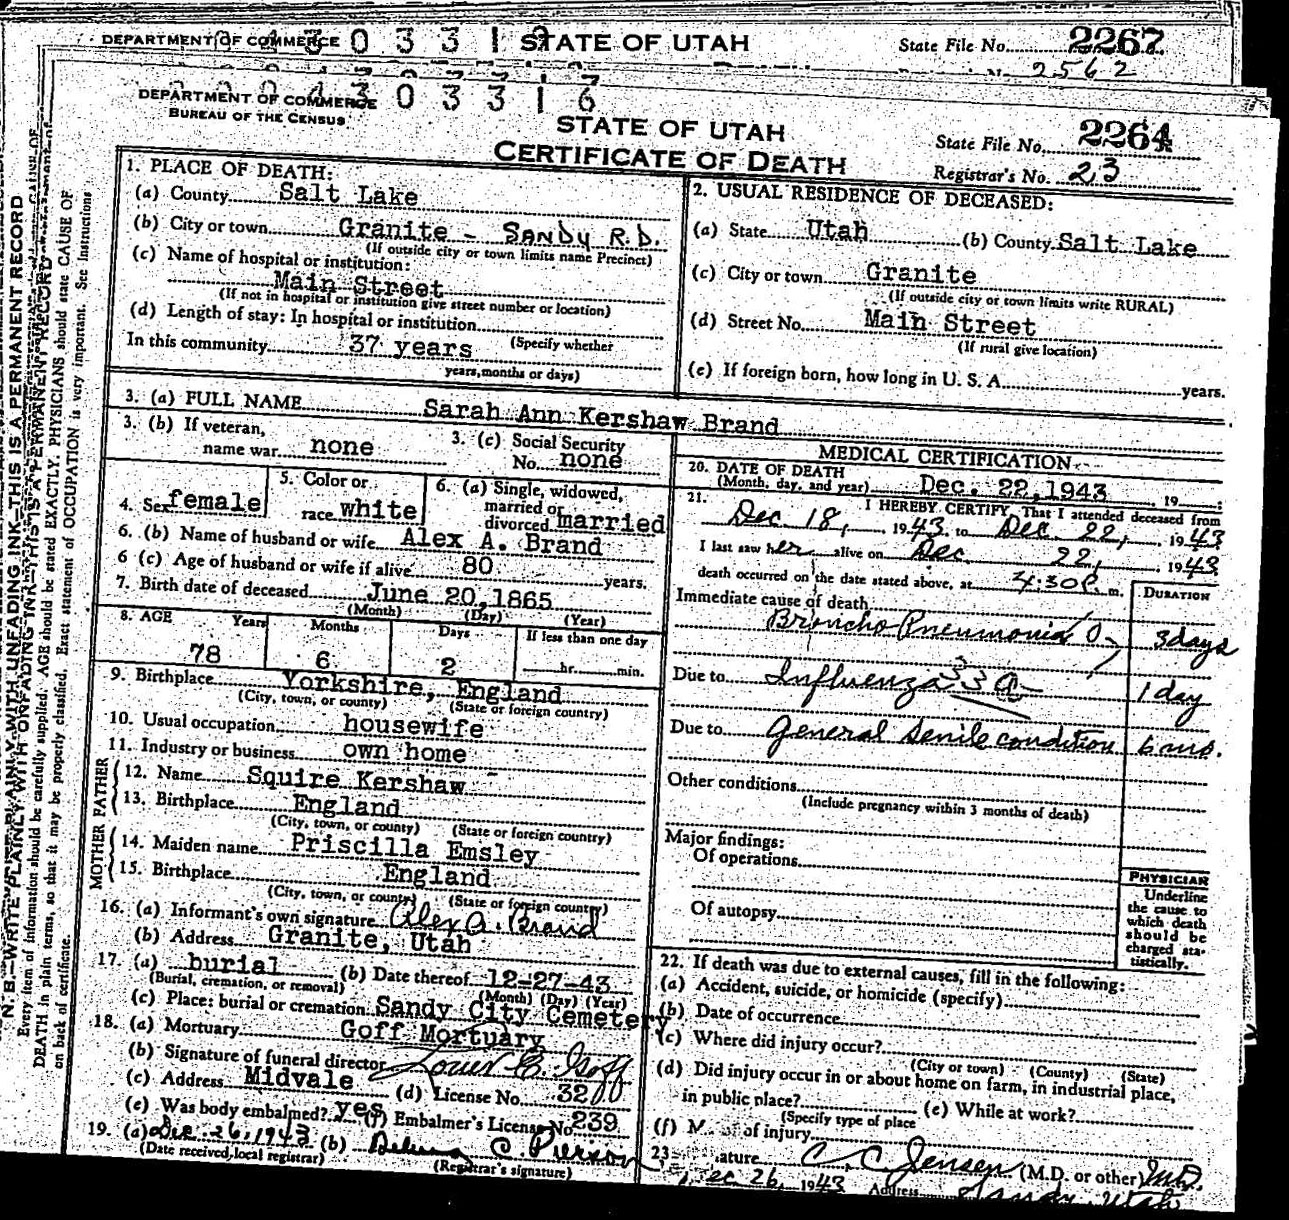 DEPARTMENT OF COMMERCE 0 3 3 1 STATE OF UTAH State File No. 2267
2562
DEPARTMENT OF COMMERCE 0 3 3 1 6
BUREAU OF THE CENSUS
STATE OF UTAH
CERTIFICATE OF DEATH
State File No. 2264
Registrar's No. 23
N. B.—WRITE PLAINLY WITH UNFADING INK—THIS IS A PERMANENT RECORD
Every item of information should be carefully supplied. AGE should be stated EXACTLY. PHYSICIANS should state CAUSE OF
DEATH in plain terms, so that it may be properly classified. Exact statement of OCCUPATION is very important. See Instructions
on back of certificate.
1. PLACE OF DEATH:
(a) County Salt Lake
(b) City or town Granite - SANDY R.D.
(If outside city or town limits name Precinct)
(c) Name of hospital or institution:
Main Street
(If not in hospital or institution give street number or location)
(d) Length of stay: In hospital or institution
(Specify whether
In this community 37 years
years, months or days)
2. USUAL RESIDENCE OF DECEASED:
(a) State Utah (b) County Salt Lake
(c) City or town Granite
(If outside city or town limits write RURAL)
(d) Street No. Main Street
(If rural give location)
(e) If foreign born, how long in U. S. A. years.
3. (a) FULL NAME Sarah Ann Kershaw Brand
3. (b) If veteran,
name war none
3. (c) Social Security
No. none
4. Sex female
5. Color or
race white
6. (a) Single, widowed,
married or
divorced married
6. (b) Name of husband or wife Alex A. Brand
6 (c) Age of husband or wife if alive 80 years.
7. Birth date of deceased June 20, 1865
(Month) (Day) (Year)
8. AGE Years Months Days If less than one day
78 6 2 hr. min.
9. Birthplace Yorkshire, England
(City, town, or county) (State or foreign country)
10. Usual occupation housewife
11. Industry or business own home
FATHER
12. Name Squire Kershaw
13. Birthplace England
(City, town, or county) (State or foreign country)
MOTHER
14. Maiden name Priscilla Emsley
15. Birthplace England
(City, town, or county) (State or foreign country)
16. (a) Informant's own signature Alex A. Brand
(b) Address Granite, Utah
17. (a) burial (b) Date thereof 12-27-43
(Burial, cremation, or removal) (Month) (Day) (Year)
(c) Place: burial or cremation Sandy City Cemetery
18. (a) Mortuary Goff Mortuary
(b) Signature of funeral director Goff
(c) Address Midvale (d) License No. 320
(e) Was body embalmed? yes (f) Embalmer's License No. 239
19. (a) Dec. 26, 1943 (b) C. Pierson
(Date received, local registrar) (Registrar's signature)
MEDICAL CERTIFICATION
20. DATE OF DEATH
(Month, day, and year) Dec. 22, 1943 , 19 :
21. I HEREBY CERTIFY, That I attended deceased from
Dec 18, 1943 to Dec. 22, 1943
I last saw her alive on Dec. 22, 1943
death occurred on the date stated above, at 4:30 P. m.
DURATION
Immediate cause of death
Broncho Pneumonia 3 days
Due to Influenza 33 a 1 day
Due to General senile condition 6 mo.
Other conditions
(Include pregnancy within 3 months of death)
Major findings:
Of operations
Of autopsy
PHYSICIAN
Underline
the cause to
which death
should be
charged sta-
tistically.
22. If death was due to external causes, fill in the following:
(a) Accident, suicide, or homicide (specify)
(b) Date of occurrence
(c) Where did injury occur?
(City or town) (County) (State)
(d) Did injury occur in or about home on farm, in industrial place,
in public place? (e) While at work?
(Specify type of place
(f) M of injury
23 ature C. C. Jensen (M.D. or other) M.D.
ec 26, 1943 Address Sandy, Utah